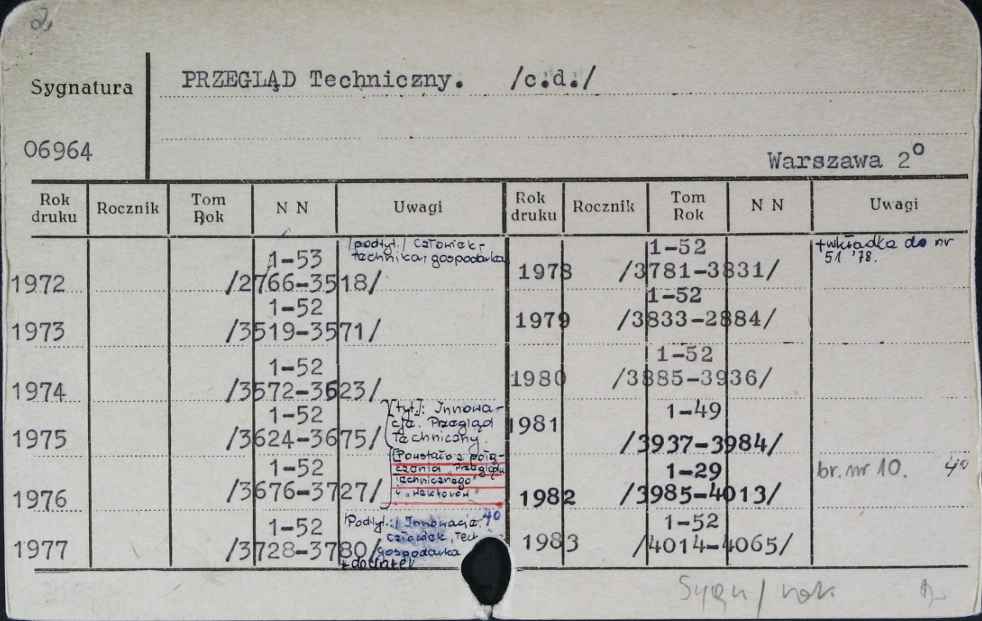 2,
Sygnatura
06964
PRZEGLĄD Techniczny. /c.d./
Warszawa 2°
Rok druku Rocznik Tom Rok N N Uwagi Rok druku Rocznik Tom Rok N N Uwagi
1972 1-53 /2766-3518/ /podtyt./ Człowiek-technika-gospodarka
1973 1-52 /3519-3571/
1974 1-52 /3572-3623/
1975 1-52 /3624-3675/ [tyt.]: Innowacje. Przegląd Techniczny.
1976 1-52 /3676-3727/ Powstało z połączenia "Przeglądu Technicznego" i "Wektorów"
1977 1-52 /3728-3780/ /Podtyt.:/ Innowacje, człowiek, Tech gospodarka 40
1978 1-52 /3781-3831/ +wkładka do nr 51 '78.
1979 1-52 /3833-2884/
1980 1-52 /3885-3936/
1981 1-49 /3937-3984/
1982 1-29 /3985-4013/ br. nr 10. 40
1983 1-52 /4014-4065/
Sygn/rok